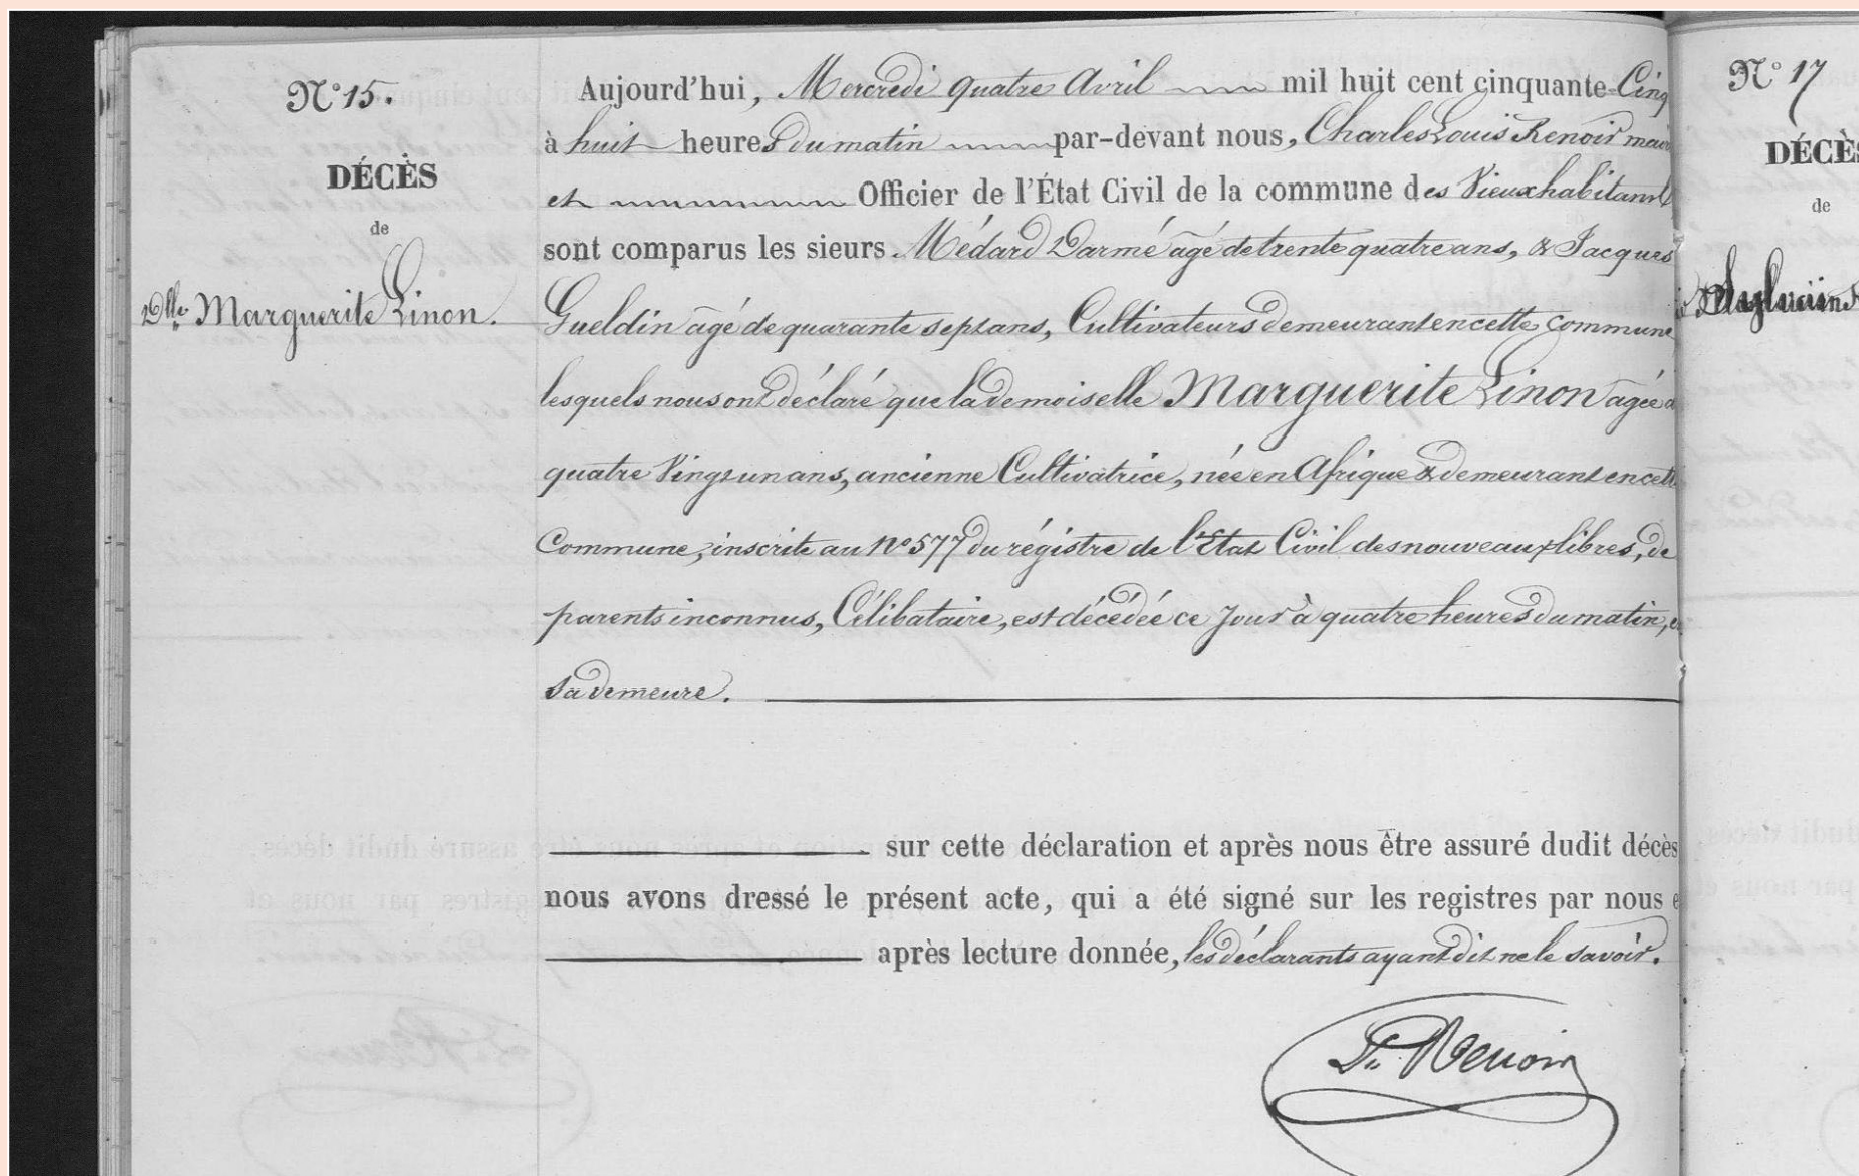 N° 15.
DÉCÈS
de
Dlle Marguerite Linon.
Aujourd'hui, Mercredi quatre Avril mil huit cent cinquante-Cinq
à huit heures du matin par-devant nous, Charles Louis Renoir mai
et Officier de l'État Civil de la commune des Vieux habitants
sont comparus les sieurs Médard Darmé âgé de trente quatre ans, & Jacques
Gueldin âgé de quarante sept ans, Cultivateurs demeurant en cette commune
lesquels nous ont déclaré que la demoiselle Marguerite Linon âgée d
quatre Vingt un ans, ancienne Cultivatrice, née en Afrique & demeurant en cette
Commune, inscrite au N° 577 du régistre de l'Etat Civil des nouveaux libres, de
parents inconnus, Célibataire, est décédée ce Jour à quatre heures du matin, e
sa demeure.
sur cette déclaration et après nous être assuré dudit décès
nous avons dressé le présent acte, qui a été signé sur les registres par nous e
après lecture donnée, les déclarants ayant dit ne le savoir.
Ls Renoir
N° 17
DÉCÈS
de